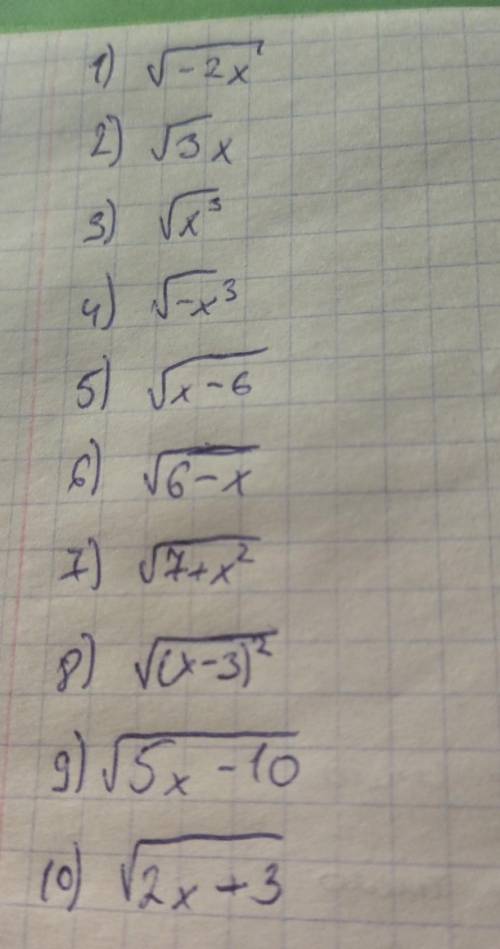 1) √-2x
2) √3x
3) √x³
4) √-x³
5) √x-6
6) √6-x
7) √7+x²
8) √(x-3)²
9) √5x-10
10) √2x+3